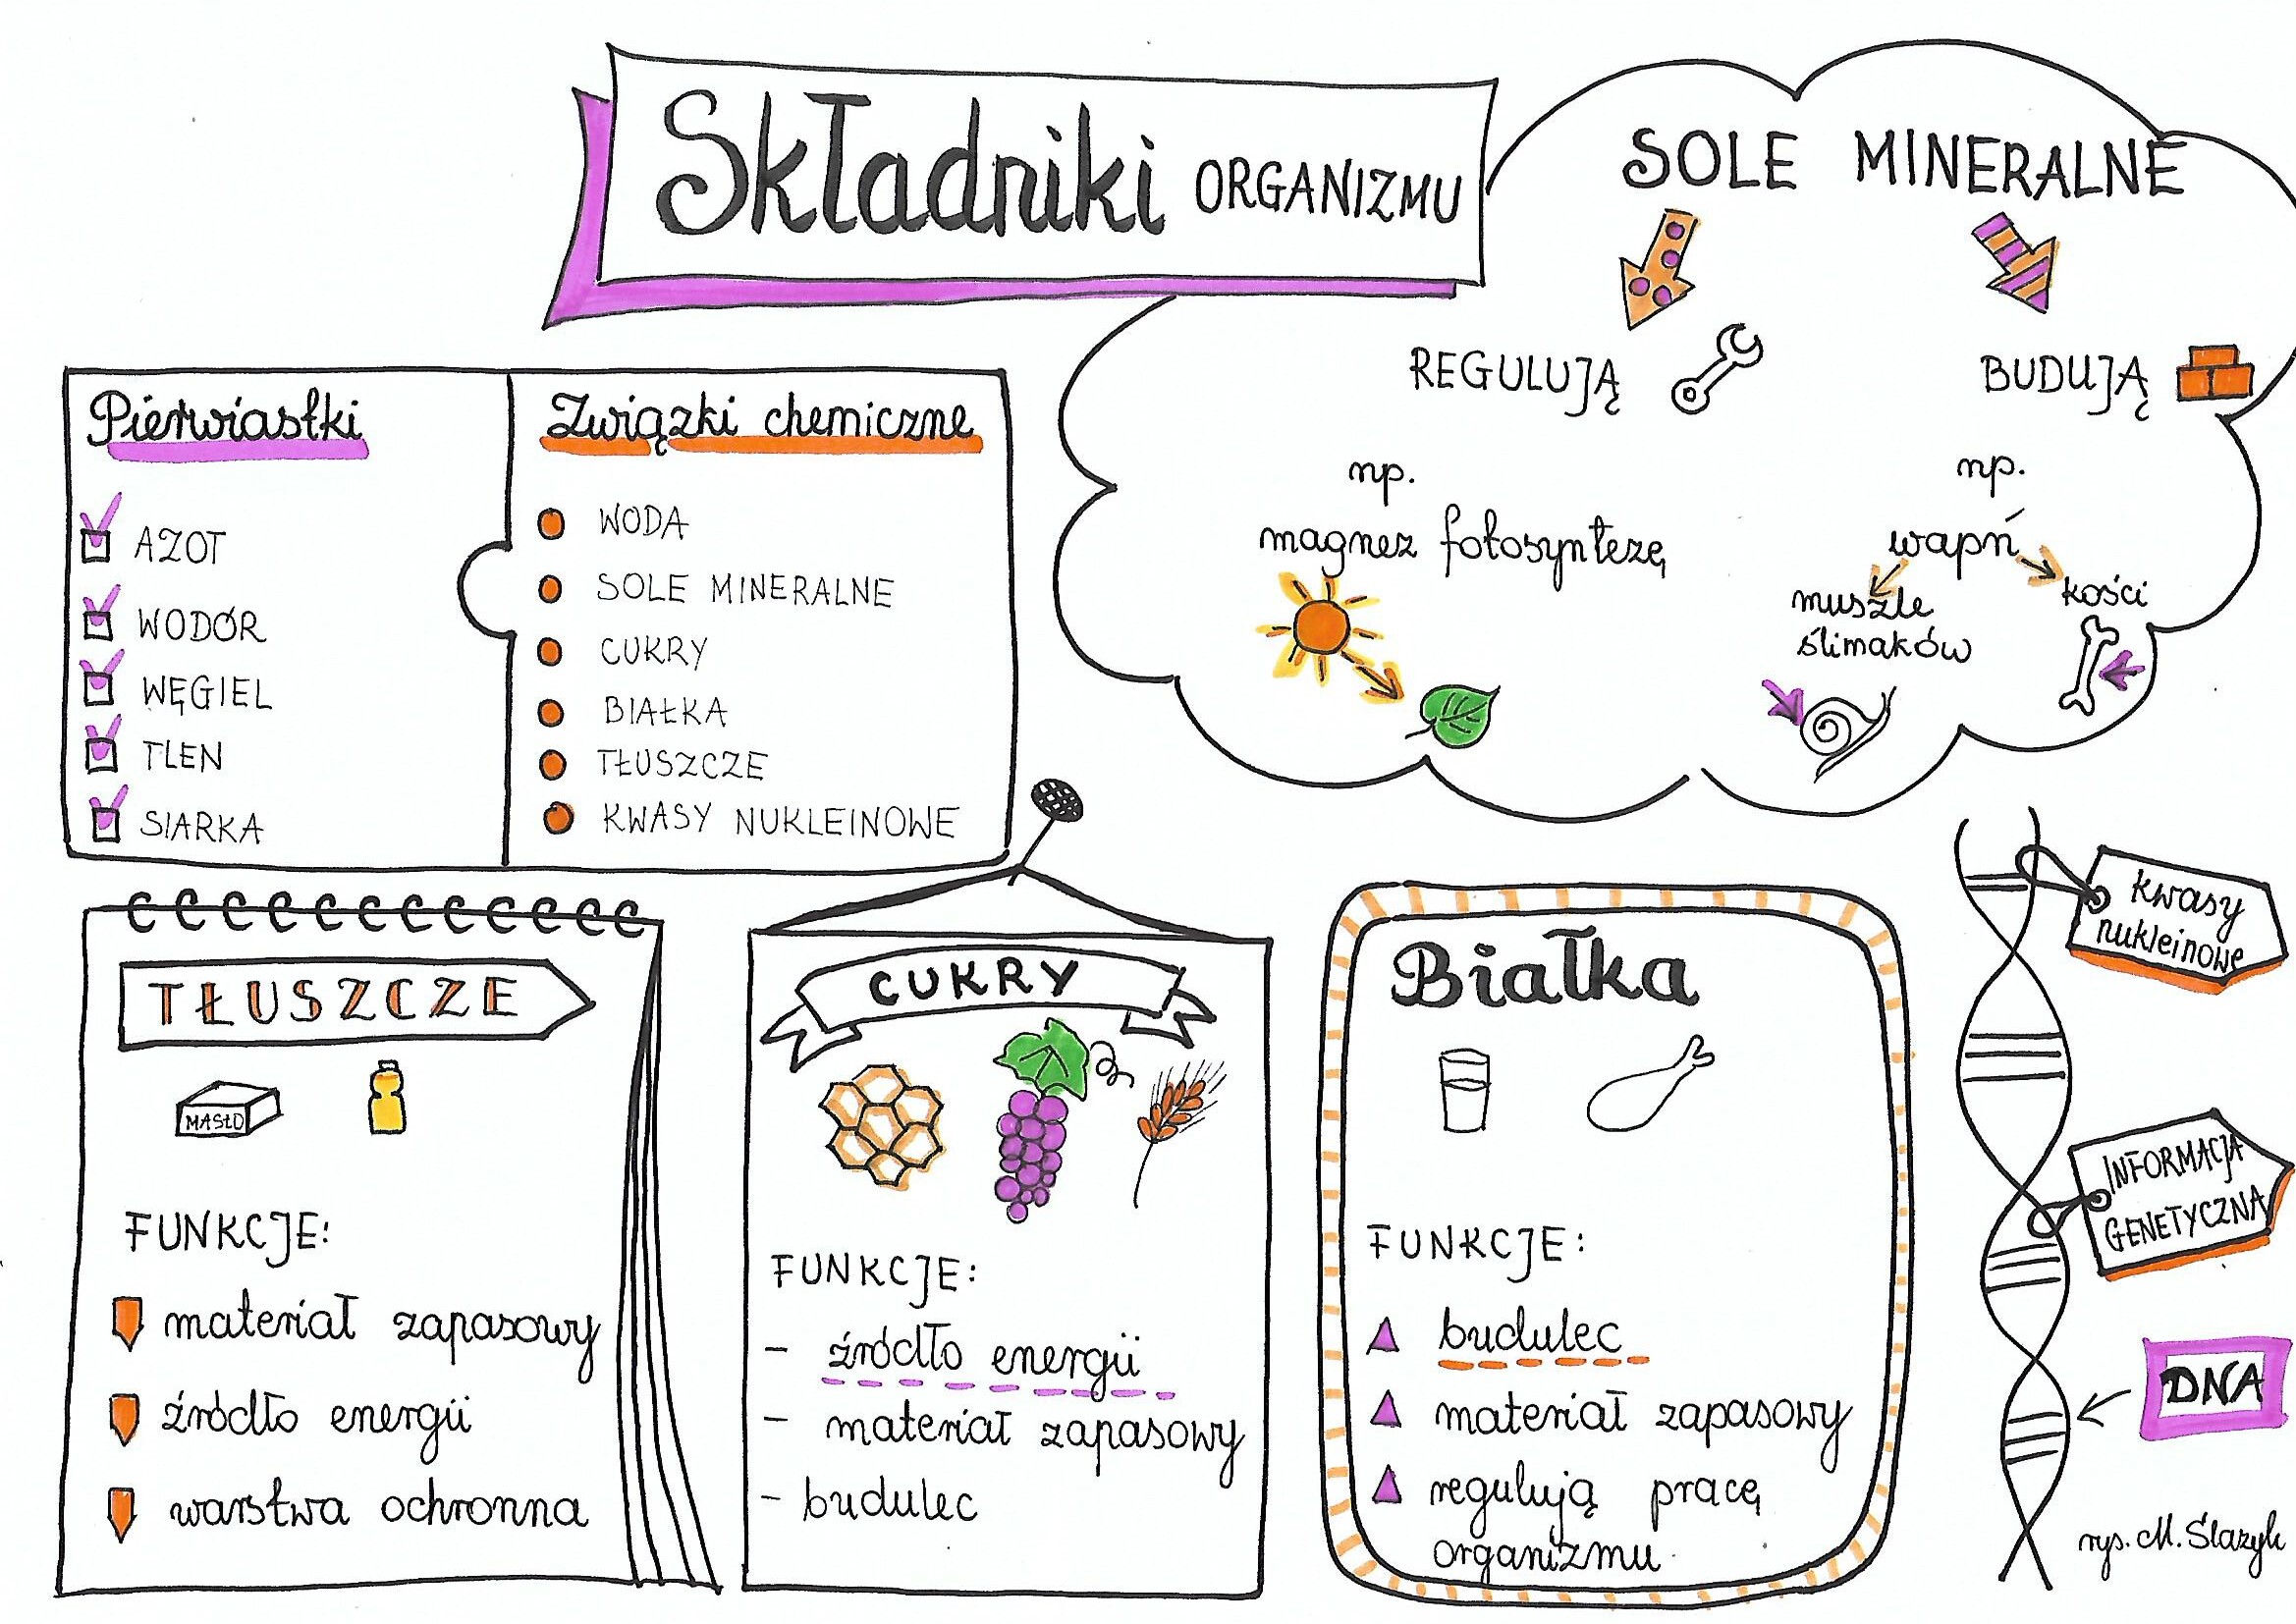 Składniki ORGANIZMU
SOLE MINERALNE
REGULUJĄ
np.
magnez fotosyntezę
BUDUJĄ
np.
wapń
muszle
ślimaków
kości
Pierwiastki
AZOT
WODÓR
WĘGIEL
TLEN
SIARKA
Związki chemiczne
WODA
SOLE MINERALNE
CUKRY
BIAŁKA
TŁUSZCZE
KWASY NUKLEINOWE
TŁUSZCZE
MASŁO
FUNKCJE:
materiał zapasowy
źródło energii
warstwa ochronna
CUKRY
FUNKCJE:
- źródło energii
- materiał zapasowy
- budulec
Białka
FUNKCJE:
budulec
materiał zapasowy
regulują pracę
organizmu
kwasy
nukleinowe
INFORMACJA
GENETYCZNA
DNA
rys. M. Ślazyk